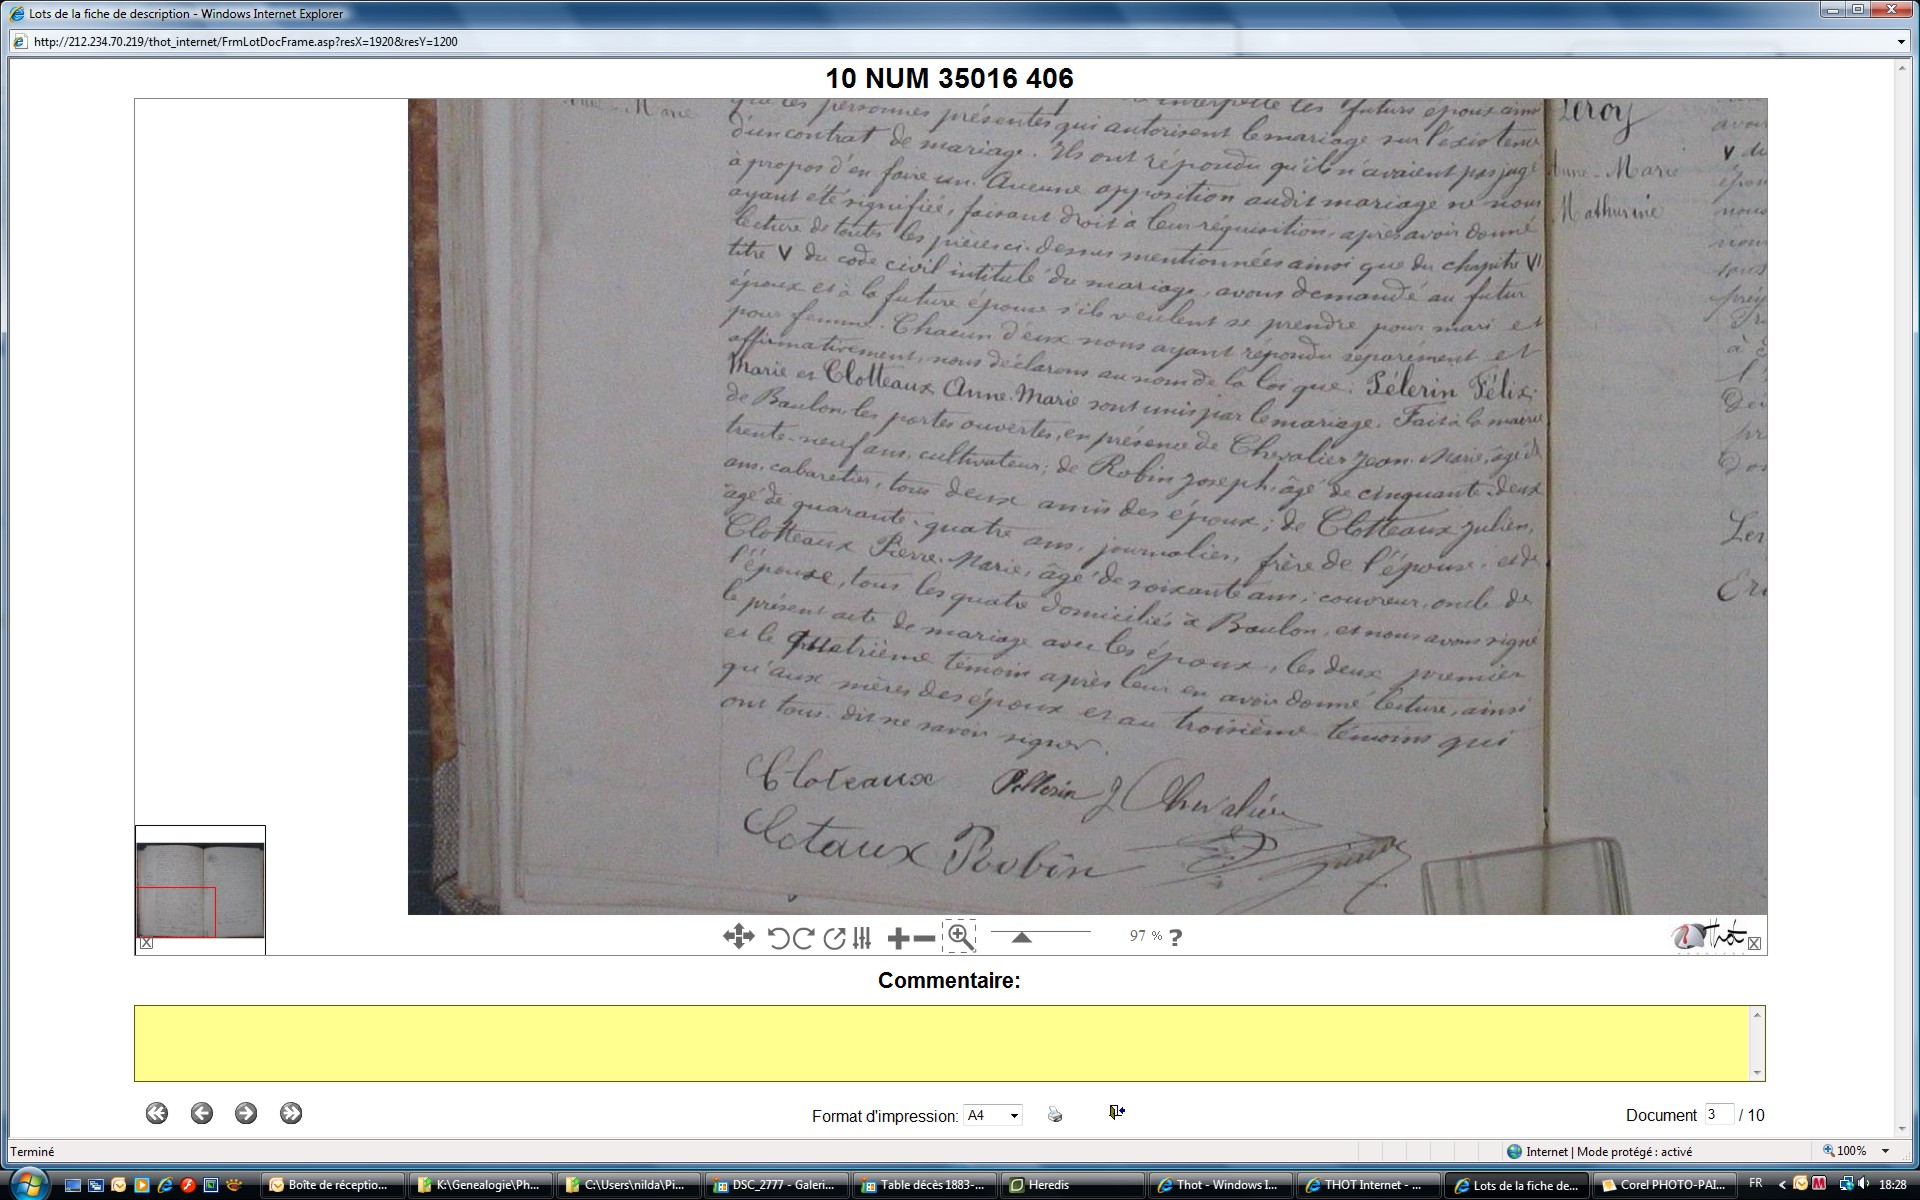 Lots de la fiche de description - Windows Internet Explorer
http://212.234.70.219/thot_internet/FrmLotDocFrame.asp?resX=1920&resY=1200
10 NUM 35016 406
Marie
que les personnes présentes qui autorisent le mariage sur l'existence
d'un contrat de mariage. Ils ont répondu qu'ils n'avaient pas jugé
à propos d'en faire un. Aucune opposition audit mariage ne nous
ayant été signifiée, faisant droit à leur réquisition, après avoir donné
lecture de toutes les pièces ci-dessus mentionnées ainsi que du chapitre VI
titre V du code civil intitulé du mariage, avons demandé au futur
époux et à la future épouse s'ils veulent se prendre pour mari et
pour femme. Chacun d'eux nous ayant répondu séparément et
affirmativement, nous déclarons au nom de la loi que: Pélerin Félix-
Marie et Clotteaux Anne-Marie sont unis par le mariage. Fait à la mairie
de Baulon, les portes ouvertes, en présence de Chevalier Jean-Marie, âgé de
trente-neuf ans, cultivateur; de Robin Joseph, âgé de cinquante-deux
ans, cabaretier, tous deux amis des époux; de Clotteaux Julien,
âgé de quarante-quatre ans, journalier, frère de l'épouse; et de
Clotteaux Pierre-Marie, âgé de soixante ans, couvreur, oncle de
l'épouse, tous les quatre domiciliés à Baulon, et nous avons signé
le présent acte de mariage avec les époux, les deux premiers
et le quatrième témoin après leur en avoir donné lecture, ainsi
qu'aux mères des époux et au troisième témoins qui
ont tous dit ne savoir signer.
Cloteaux Pellerin J Chevalier
Clotaux Robin
Leroy
Anne-Marie
Mathurine
97 % ?
Thot
Commentaire:
Format d'impression: A4
Document 3 / 10
Terminé
Internet | Mode protégé : activé
100%
Boîte de réceptio...
K:\Genealogie\Ph...
C:\Users\nilda\Pi...
DSC_2777 - Galeri...
Table décès 1883-...
Heredis
Thot - Windows I...
THOT Internet - ...
Lots de la fiche de...
Corel PHOTO-PAI...
FR
18:28